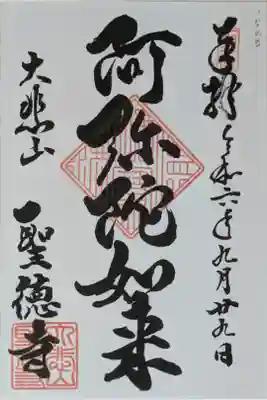 奉拝 令和六年九月廿九日
阿弥陀如来
大悲山
聖徳寺